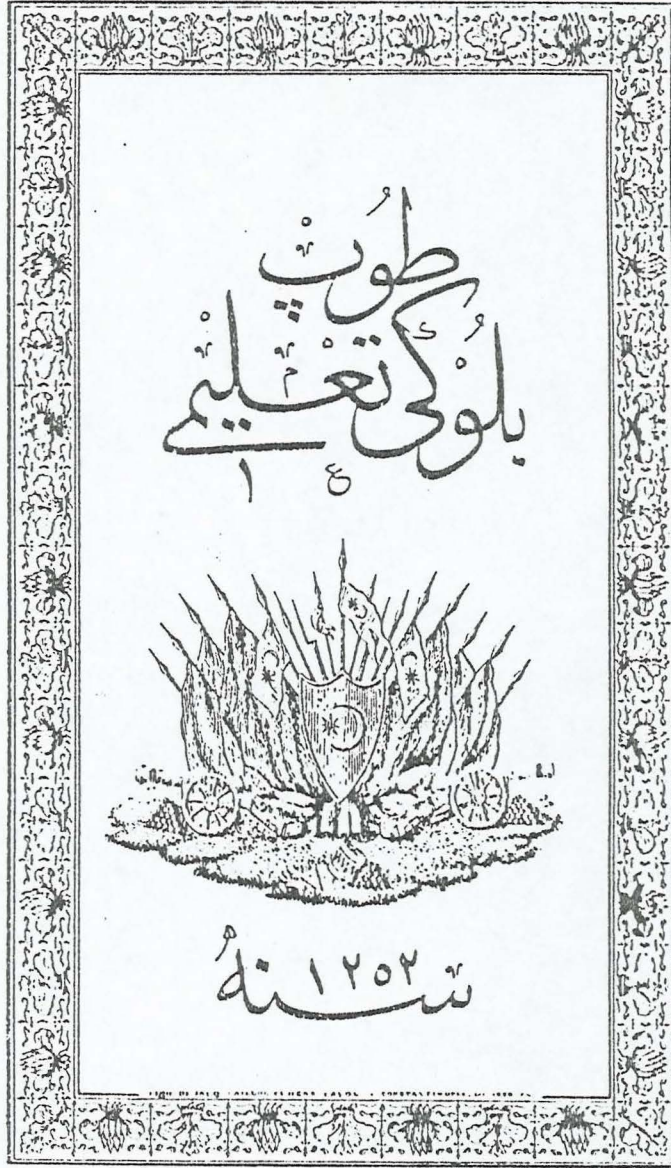 طوپ
بلوكی تعلیمی
سنه ١٢٥٢